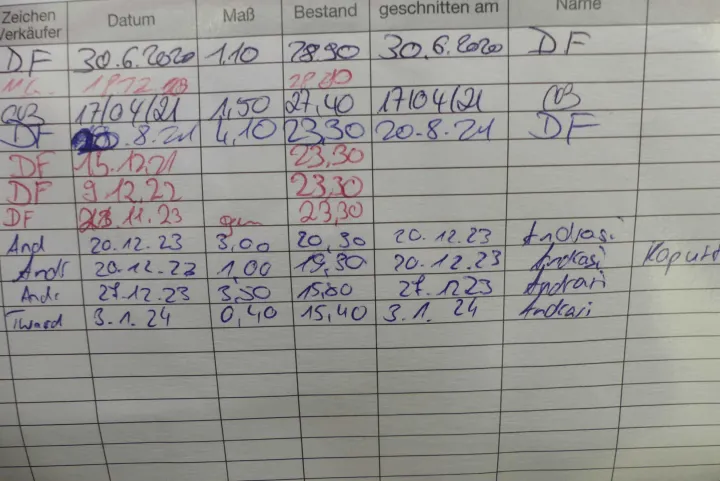 Zeichen Verkäufer Datum Maß Bestand geschnitten am Name
DF 30.6.2020 1,10 28,90 30.6.2020 DF
28,90
17/04/21 1,50 27,40 17/04/21
DF 20.8.21 4,10 23,30 20.8.21 DF
DF 15.12.21 23,30
DF 9.12.22 23,30
DF 23.11.23 23,30
And 20.12.23 3,00 20,30 20.12.23
20.12.23 1,00 19,30 20.12.23 Kaputt
27.12.23 3,50 15,80 27.12.23 Andkari
3.1.24 0,40 15,40 3.1.24 Andkari